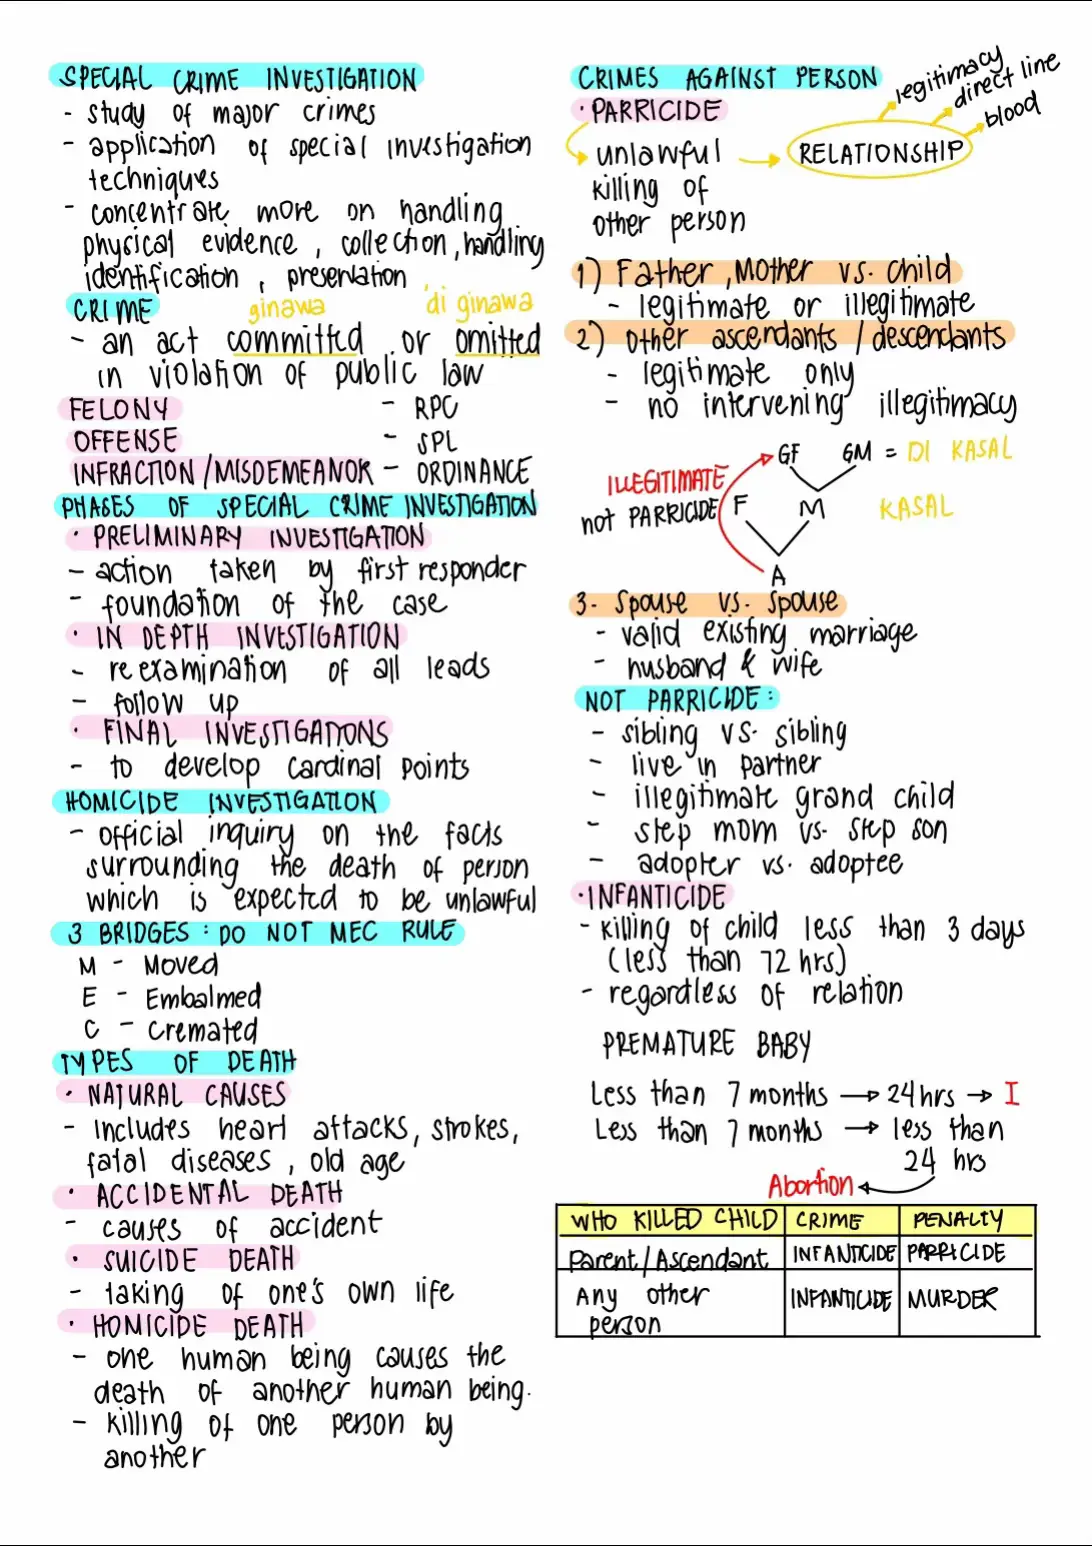 SPECIAL CRIME INVESTIGATION
- study of major crimes
- application of special investigation
techniques
- concentrate more on handling
physical evidence, collection, handling
identification, presentation
ginawa 'di ginawa
CRIME
- an act committed or omitted
in violation of public law
FELONY - RPC
OFFENSE - SPL
INFRACTION/MISDEMEANOR - ORDINANCE
PHASES OF SPECIAL CRIME INVESTIGATION
· PRELIMINARY INVESTIGATION
- action taken by first responder
- foundation of the case
· IN DEPTH INVESTIGATION
- re examination of all leads
- follow up
· FINAL INVESTIGATIONS
- to develop cardinal points
HOMICIDE INVESTIGATION
- official inquiry on the facts
surrounding the death of person
which is expected to be unlawful
3 BRIDGES: DO NOT MEC RULE
M - Moved
E - Embalmed
C - Cremated
TYPES OF DEATH
· NATURAL CAUSES
- includes heart attacks, strokes,
fatal diseases, old age
· ACCIDENTAL DEATH
- causes of accident
· SUICIDE DEATH
- taking of one's own life
· HOMICIDE DEATH
- one human being causes the
death of another human being.
- killing of one person by
another
CRIMES AGAINST PERSON
· PARRICIDE
legitimacy
direct line
blood
unlawful → RELATIONSHIP
killing of
other person
1) Father, Mother vs. child
- legitimate or illegitimate
2) other ascendants / descendants
- legitimate only
- no intervening illegitimacy
GF GM = DI KASAL
ILLEGITIMATE
not PARRICIDE F M KASAL
A
3. Spouse vs. Spouse
- valid existing marriage
- husband & wife
NOT PARRICIDE:
- sibling vs. sibling
- live in partner
- illegitimate grand child
- step mom vs. step son
- adopter vs. adoptee
· INFANTICIDE
- killing of child less than 3 days
(less than 72 hrs)
- regardless of relation
PREMATURE BABY
Less than 7 months → 24 hrs → I
Less than 7 months → less than
24 hrs
Abortion
WHO KILLED CHILD CRIME PENALTY
Parent/Ascendant INFANTICIDE PARRICIDE
Any other INFANTICIDE MURDER
person